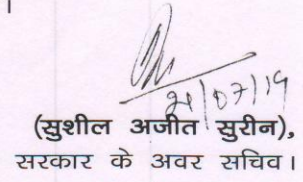 ।
21/07/19
(सुशील अजीत सुरीन),
सरकार के अवर सचिव।